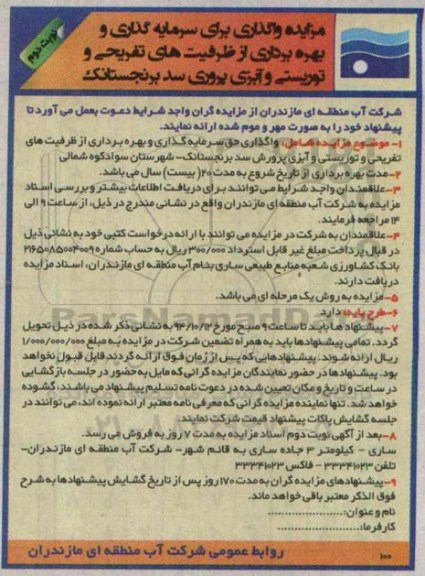 نوبت دوم
مزایده واگذاری برای سرمایه گذاری و
بهره برداری از ظرفیت های تفریحی و
توریستی و آبزی پروری سد برنجستانک
شرکت آب منطقه ای مازندران از مزایده گران واجد شرایط دعوت بعمل می آورد تا
پیشنهاد خود را به صورت مهر و موم شده ارائه نمایند.
۱- موضوع مزایده شامل: واگذاری حق سرمایه گذاری و بهره برداری از ظرفیت های
تفریحی و توریستی و آبزی پرورش سد برنجستانک- شهرستان سوادکوه شمالی
۲- مدت بهره برداری از تاریخ شروع به مدت ۲۰ (بیست) سال می باشد.
۳- علاقمندان واجد شرایط می توانند برای دریافت اطلاعات بیشتر و بررسی اسناد
مزایده به شرکت آب منطقه ای مازندران واقع در نشانی مندرج در ذیل، از ساعت ۹ الی
۱۴ مراجعه فرمایند.
۴- علاقمندان به شرکت در مزایده می توانند با ارائه درخواست کتبی خود به نشانی ذیل
در قبال پرداخت مبلغ غیر قابل استرداد ۳۰۰/۰۰۰ ریال به حساب شماره ۲۱۶۵۰۸۵۰۰۴۰۰۹
بانک کشاورزی شعبه منابع طبیعی ساری بنام آب منطقه ای مازندران، اسناد مزایده
دریافت دارند.
۵- مزایده به روش یک مرحله ای می باشد.
۶- طرح پایه: دارد
۷- پیشنهاد ها باید تا ساعت ۹ صبح مورخ ۹۴/۱۰/۱۲ به نشانی ذکر شده در ذیل تحویل
گردد. تمامی پیشنهادها باید به همراه تضمین شرکت در مزایده به مبلغ ۱/۰۰۰/۰۰۰/۰۰۰
ریال ارائه شوند. پیشنهادهایی که پس از زمان فوق ارائه گردند قابل قبول نخواهد
بود. پیشنهادها در حضور نمایندگان مزایده گرانی که مایل به حضور در جلسه بازگشایی
در ساعت و تاریخ و مکان تعیین شده در دعوت نامه تسلیم پیشنهاد می باشند، گشوده
خواهد شد. تنها نماینده مزایده گرانی که معرفی نامه معتبر ارائه نموده اند، می توانند در
جلسه گشایش پاکات پیشنهاد قیمت شرکت نمایند.
۸- بعد از آگهی نوبت دوم اسناد مزایده به مدت ۷ روز به فروش می رسد.
ساری - کیلومتر ۳ جاده ساری به قائم شهر- شرکت آب منطقه ای مازندران-
تلفن ۳۳۳۴۱۰۲۳ - فاکس ۳۳۳۴۱۰۲۳
۹- پیشنهادهای مزایده گران به مدت ۱۷۰ روز پس از تاریخ گشایش پیشنهادها به شرح
فوق الذکر معتبر باقی خواهد ماند.
نام و عنوان:......................
کارفرما:......................
روابط عمومی شرکت آب منطقه ای مازندران
۱۰۰
ParsNamadData